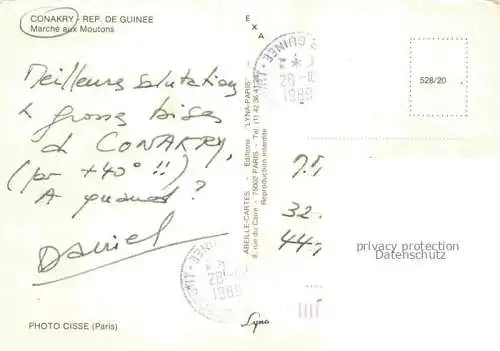 CONAKRY - REP. DE GUINEE
Marché aux Moutons
Meilleures salutations
& grosses bises
de CONAKRY,
(par +40° !!)
A quand ?
Daniel
PHOTO CISSE (Paris)
EXA
ABEILLE-CARTES - Editions "LYNA-PARIS"
8, rue du Caire - 75002 PARIS - Tél. (1) 42 36 41
Reproduction interdite
Lyna
GUINEE
28
1989
GUINEE
28
1989
528/20
32
44
privacy protection
Datenschutz